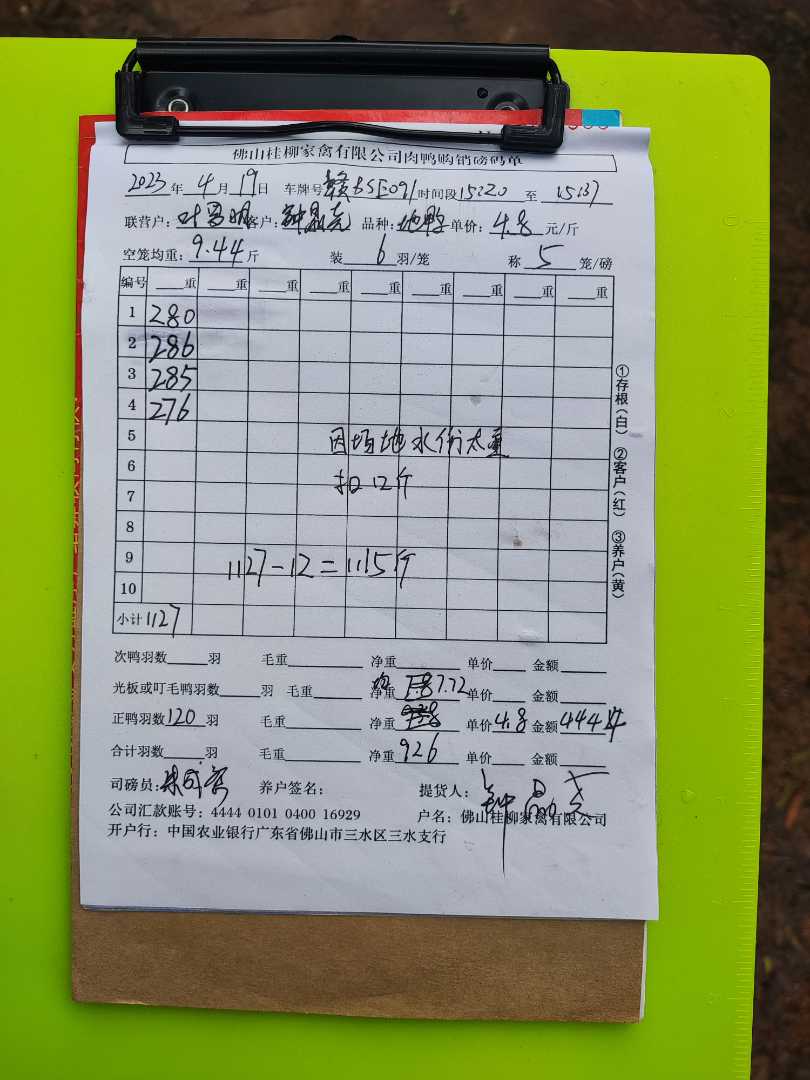 佛山桂柳家禽有限公司肉鸭购销磅码单
2023年 4月19日 车牌号赣BSE091时间段15:20 至 15:37
联营户:叶昌明客户: 品种: 鸭单价:4.8元/斤
空笼均重:9.44斤 装 6 羽/笼 称 5 笼/磅
编号 重 重 重 重 重 重 重 重 重
1 280
2 286
3 285
4 276
5 因场地水份太重
6
7 扣12斤
8
9 1127-12=1115斤
10
小计 1127
①存根(白) ②客户(红) ③养户(黄)
次鸭羽数 羽 毛重 净重 单价 金额
光板或叮毛鸭羽数 羽 毛重 净重 7.72 单价 金额
正鸭羽数120羽 毛重 净重 单价4.8金额4444
合计羽数 羽 毛重 净重926 单价 金额
司磅员: 养户签名: 提货人:
公司汇款账号:4444 0101 0400 16929 户名:佛山桂柳家禽有限公司
开户行:中国农业银行广东省佛山市三水区三水支行